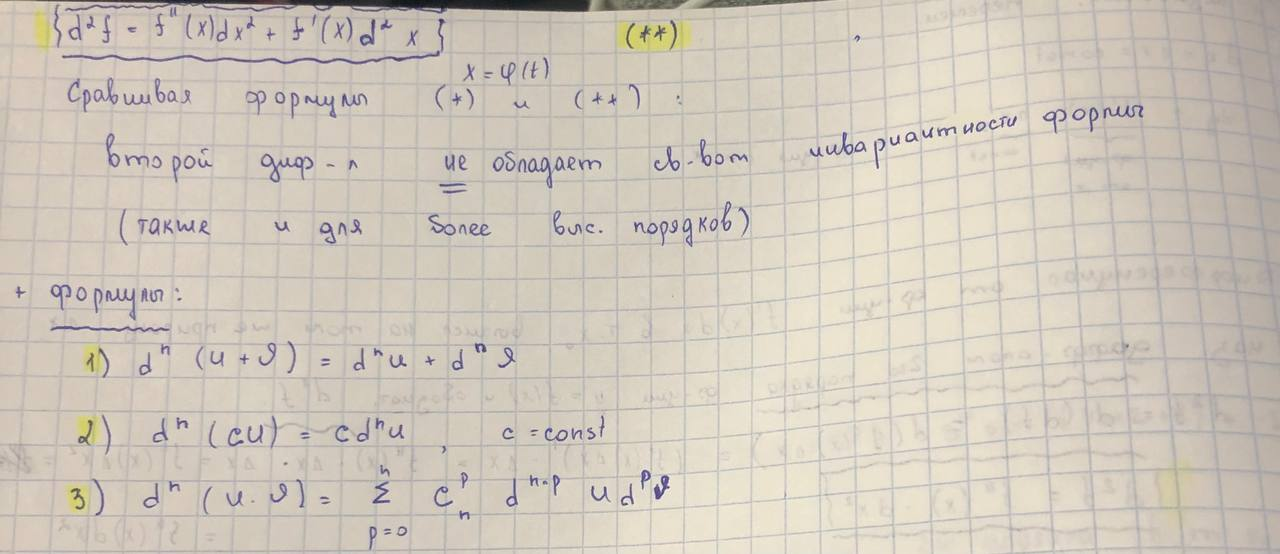 {d²f = f''(x)dx² + f'(x)d² x} (**)
x = φ(t)
Сравнивая формулы (*) и (**) :
второй диф-л не обладает св-вом инвариантности формы
(также и для более выс. порядков)
+ формулы:
1) dⁿ (u + v) = dⁿu + dⁿ v
2) dⁿ (cu) = cdⁿu , c = const
3) dⁿ (u · v) = Σ_{p=0}^{n} C_n^p d^{n-p} u d^p v